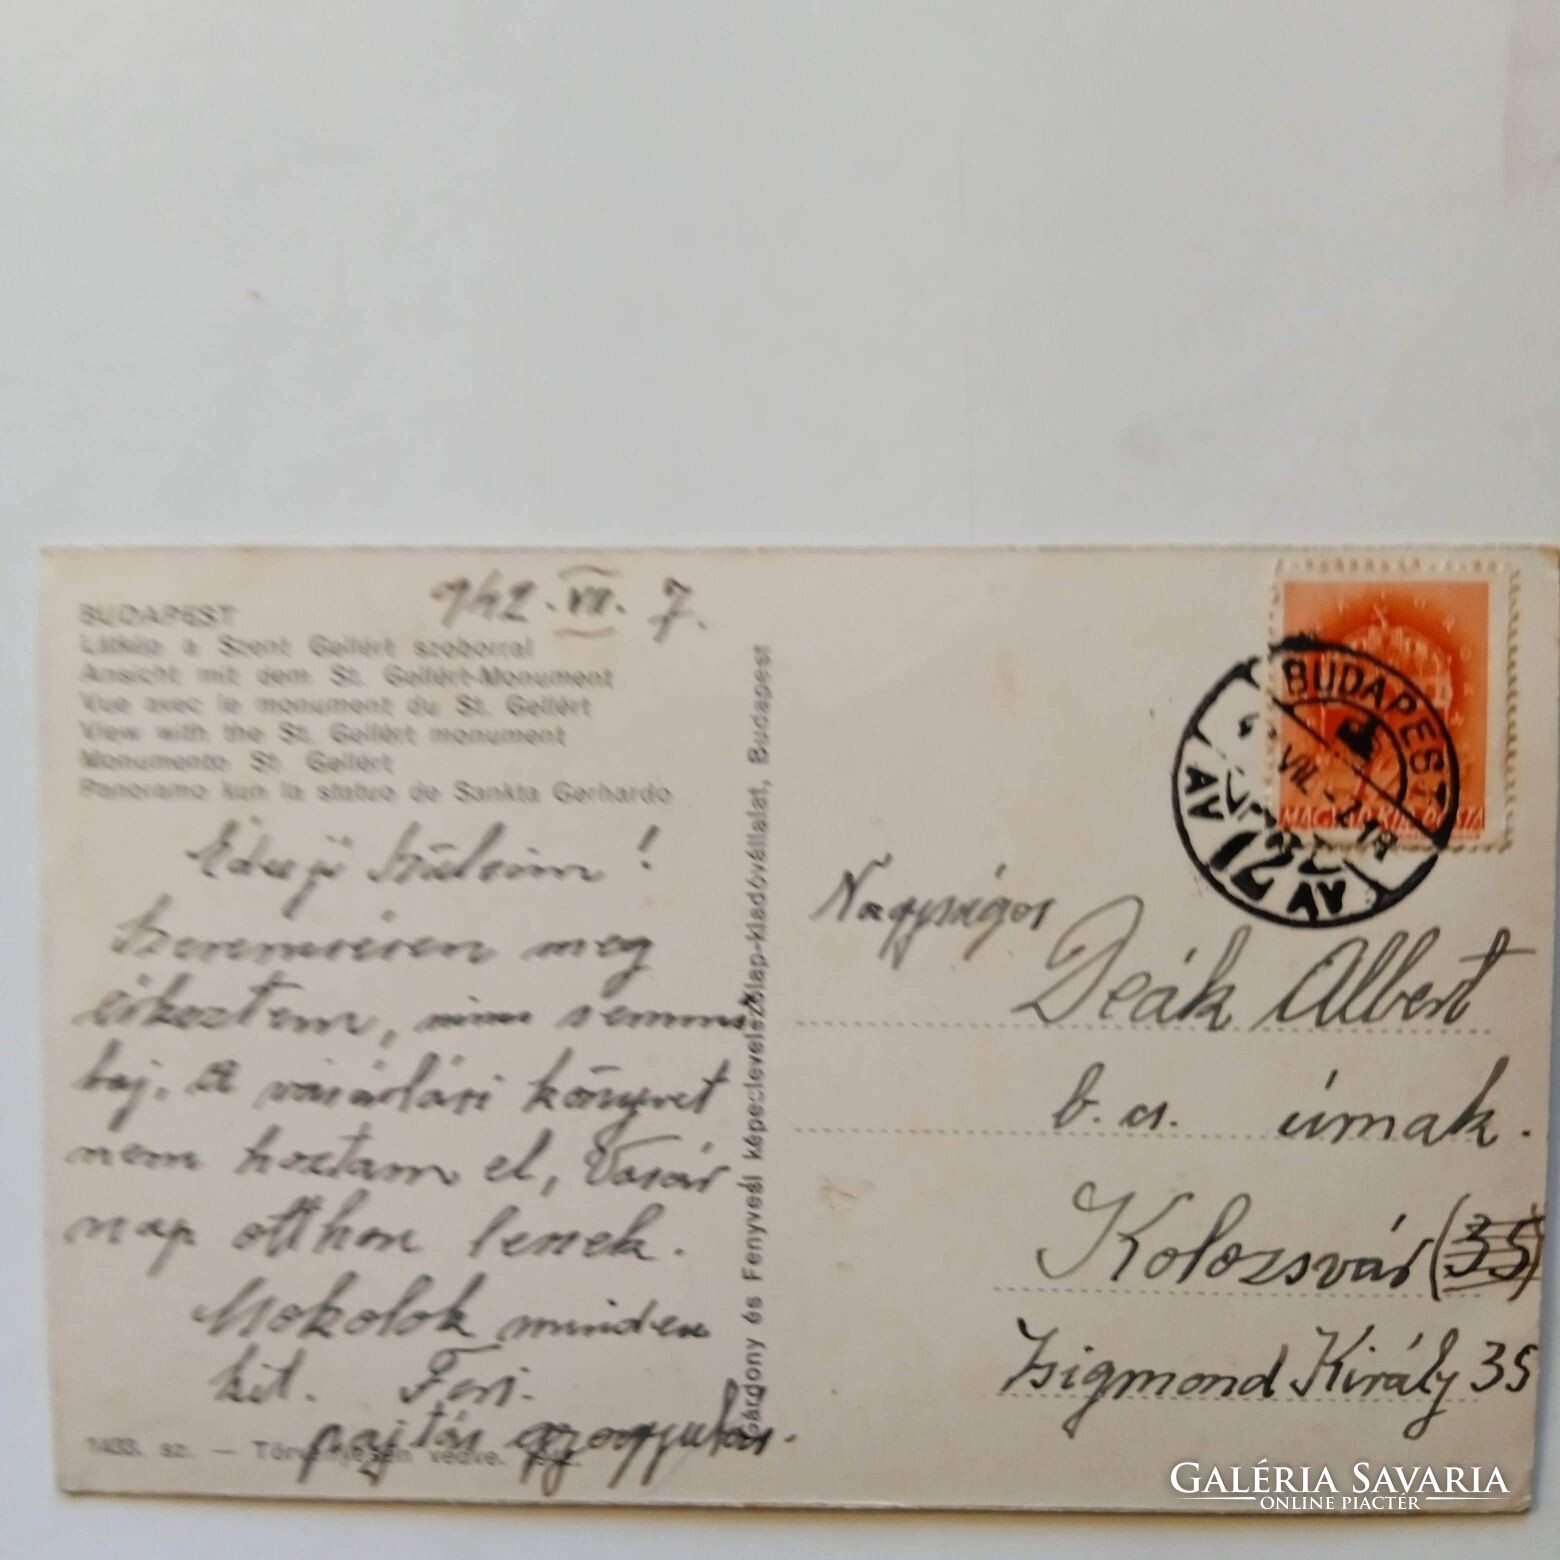 942. VII. 7.
BUDAPEST
Látkép a Szent Gellért szoborral
Ansicht mit dem St. Gellért-Monument
Vue avec le monument du St. Gellért
View with the St. Gellért monument
Monumento St. Gellért
Panoramo kun la statuo de Sankta Gerhardo
Édes jó Szüleim!
Szerencsésen meg
érkeztem, nincs semmi
baj. A vásárlási könyvet
nem hoztam el, Vasár
nap otthon leszek.
Csókolok mindenkit
kit. Feri.
pajtás
1433. sz. — Törvényesen védve.
Bárdony és Fenyvesi képeslevelezőlap-kiadóvállalat, Budapest
MAGYAR KIR. POSTA
BUDAPEST
72
Nagyságos
Deák Albert
b. cs. úrnak.
Kolozsvár (35)
Zsigmond Király 35
GALÉRIA SAVARIA
ONLINE PIACTÉR